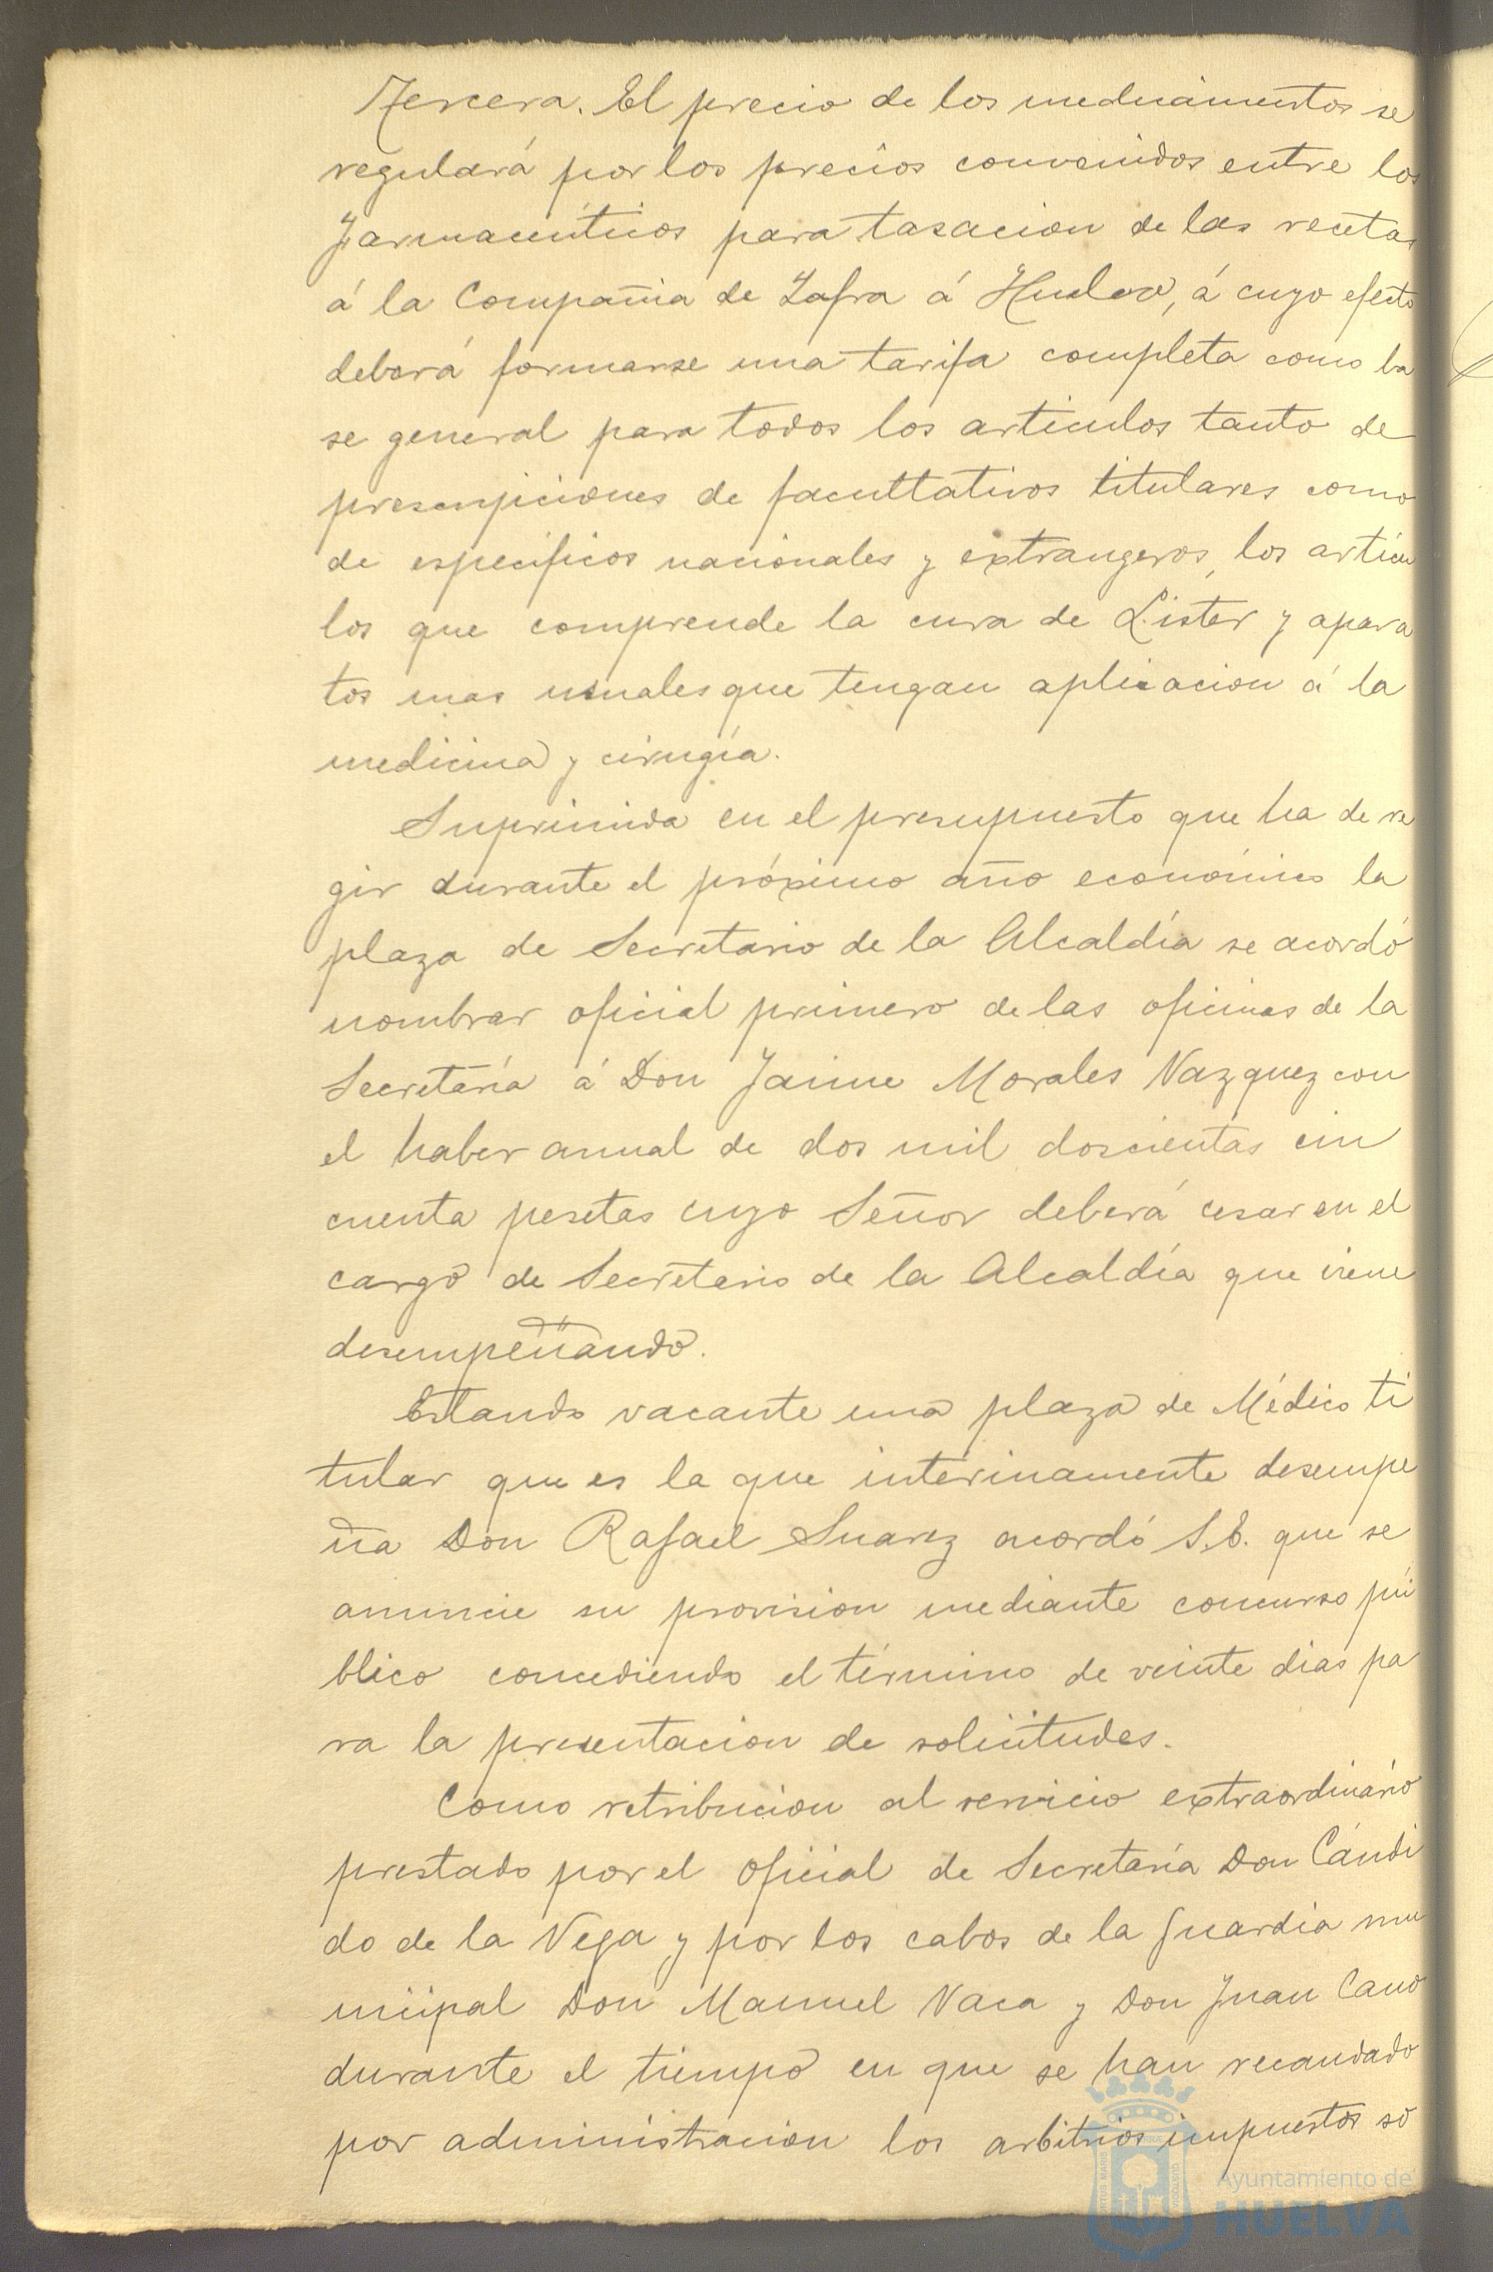 Tercera. El precio de los medicamentos se
regulará por los precios convenidos entre los
Farmaceúticos para tasacion de las recetas
á la Compañia de Zafra á Huelva, á cuyo efecto
deberá formarse una tarifa completa como ba
se general para todos los articulos tanto de
prescripciones de facultativos titulares como
de especificos nacionales y extrangeros, los articu
los que comprende la cura de Lister y apara
tos mas usuales que tengan aplicacion á la
medicina y cirugía.
Suprimida en el presupuesto que ha de re
gir durante el próximo año económico la
plaza de Secretario de la Alcaldía se acordó
nombrar oficial primero de las oficinas de la
Secretaría á Don Jaime Morales Vazquez con
el haber anual de dos mil doscientas cin
cuenta pesetas cuyo Señor deberá cesar en el
cargo de Secretario de la Alcaldía que viene
desempeñando.
Estando vacante una plaza de Médico ti
tular que es la que interinamente desempe
ña Don Rafael Suarez acordó S.E. que se
anuncie su provision mediante concurso pú
blico concediendo el término de veinte dias pa
ra la presentacion de solicitudes.
Como retribucion al servicio extraordinario
prestado por el oficial de Secretaría Don Cándi
do de la Vega y por los cabos de la guardia mu
nicipal Don Manuel Vaca y Don Juan Cano
durante el tiempo en que se han recaudado
por administracion los arbitrios impuestos so
Ayuntamiento de
HUELVA